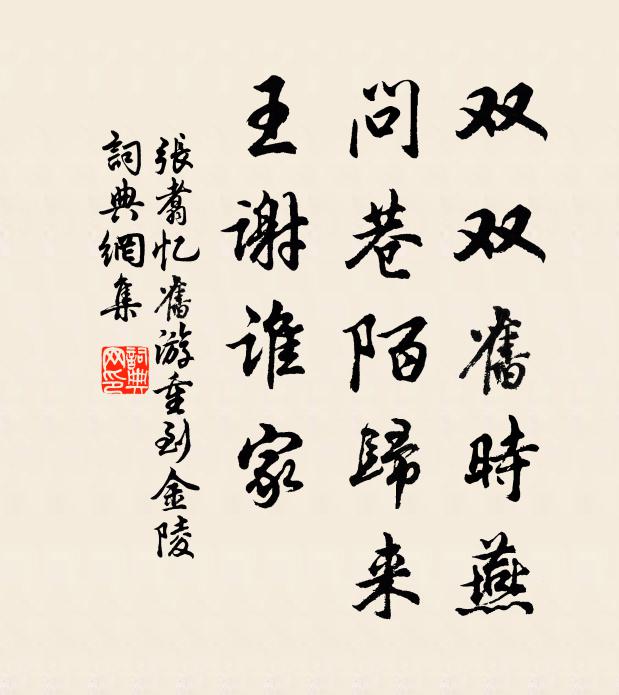 双双舊時燕
問巷陌歸来
王谢谁家
張翥忆舊游重到金陵
詞典網集
詞典网印